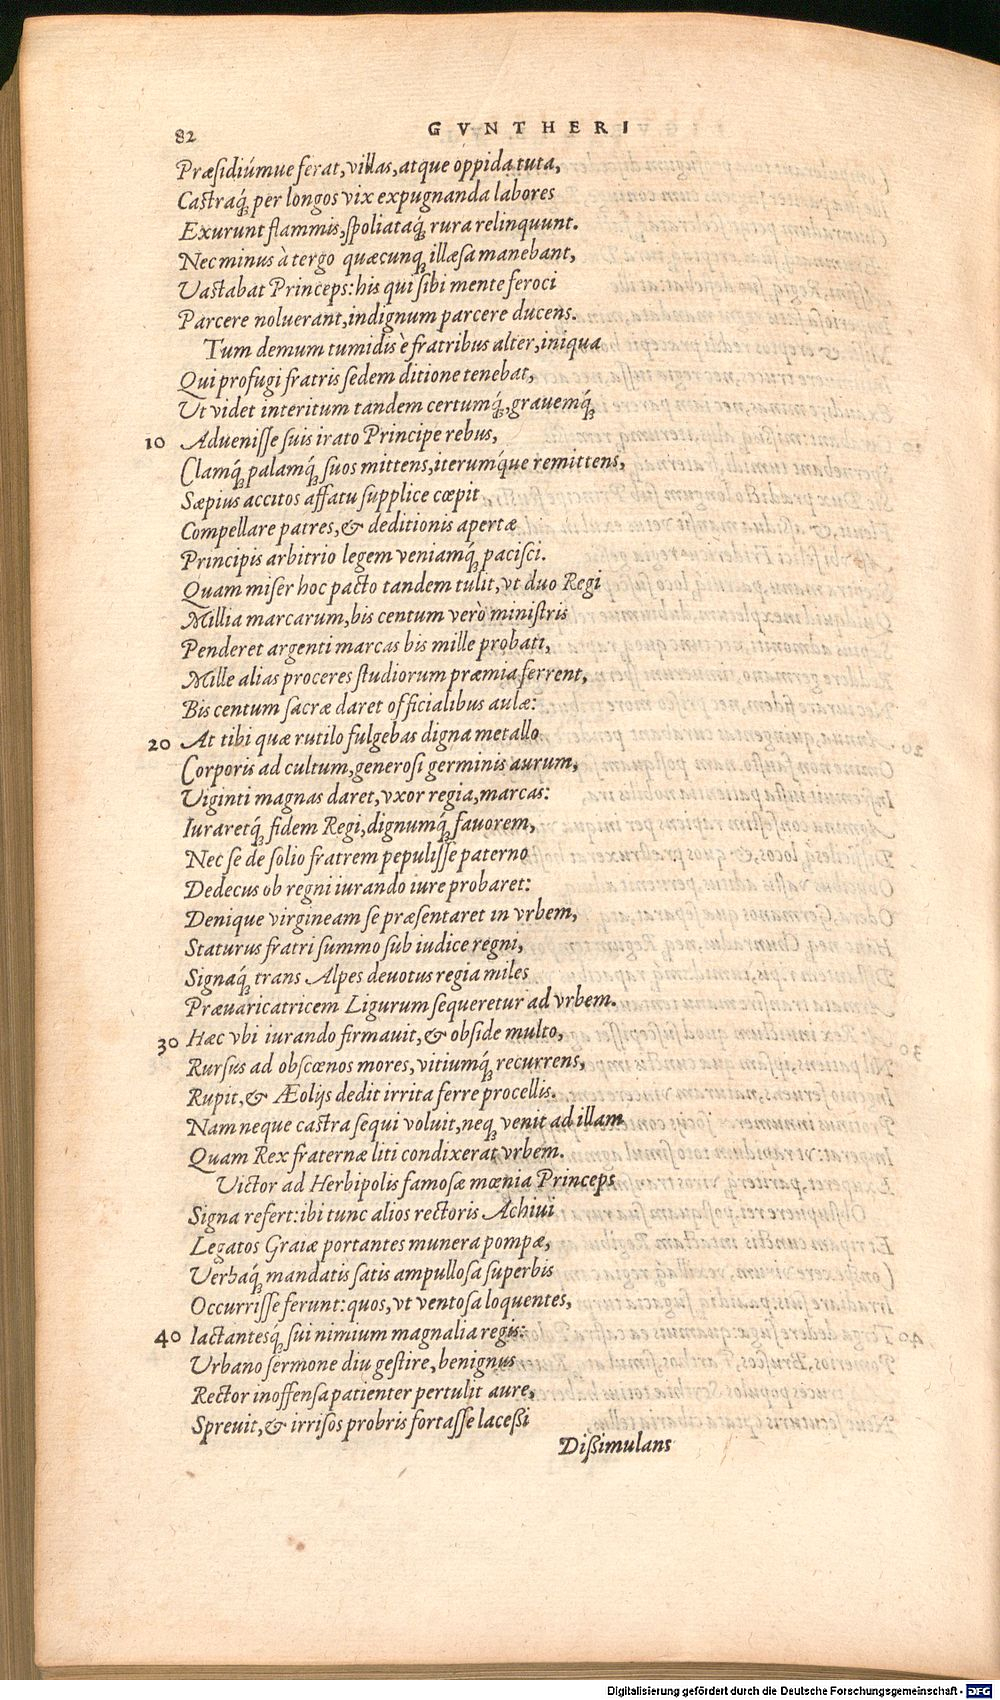 82 GVNTHERI
Præsidiúmue ferat, villas, atque óppida tuta,
Castraq́; per longos vix expugnanda labores
Exurunt flammis, spoliataq́; rura relinquunt.
Nec minus à tergo quæcunq; illæsa manebant,
Vastabat Princeps: his qui sibi mente feroci
Parcere noluerant, indignum parcere ducens.
Tum demum tumidis è fratribus alter, iniqua
Qui profugi fratris sedem ditione tenebat,
Ut videt interitum tandem certumq́;, grauemq́;
10 Aduenisse suis irato Principe rebus,
Clamq́; palamq́; suos mittens, iterumq́ue remittens,
Sæpius accitos affatu supplice cœpit
Compellare patres, & deditionis apertæ
Principis arbitrio legem veniamq́; pacisci.
Quam miser hoc pacto tandem tulit, vt duo Regi
Millia marcarum, bis centum verò ministris
Penderet argenti marcas bis mille probati,
Mille alias proceres studiorum præmia ferrent,
Bis centum sacræ daret officialibus aulæ:
20 At tibi quæ rutilo fulgebas digna metallo
Corporis ad cultum, generosi germinis aurum,
Viginti magnas daret, vxor regia, marcas:
Iuraretq́; fidem Regi, dignumq́; fauorem,
Nec se de solio fratrem pepulisse paterno
Dedecus ob regni iurando iure probaret:
Denique virgineam se præsentaret in vrbem,
Staturus fratri summo sub iudice regni,
Signaq́; trans Alpes deuotus regia miles
Præuaricatricem Ligurum sequeretur ad vrbem.
30 Hæc vbi iurando firmauit, & obside multo,
Rursus ad obscœnos mores, vitiumq́; recurrens,
Rupit, & Æolijs dedit irrita ferre procellis.
Nam neque castra sequi voluit, neq; venit ad illam
Quam Rex fraternæ liti condixerat vrbem.
Victor ad Herbipolis famosæ mœnia Princeps
Signa refert: ibi tunc alios rectoris Achiui
Legatos Graiæ portantes munera pompæ,
Verbaq́; mandatis satis ampullosa superbis
Occurrisse ferunt: quos, vt ventosa loquentes,
40 Iactantesq́; sui nimium magnalia regis:
Urbano sermone diu gestire, benignus
Rector inoffensa patienter pertulit aure,
Spreuit, & irrisos probris fortasse lacessi
Dissimulans
Digitalisierung gefördert durch die Deutsche Forschungsgemeinschaft - DFG